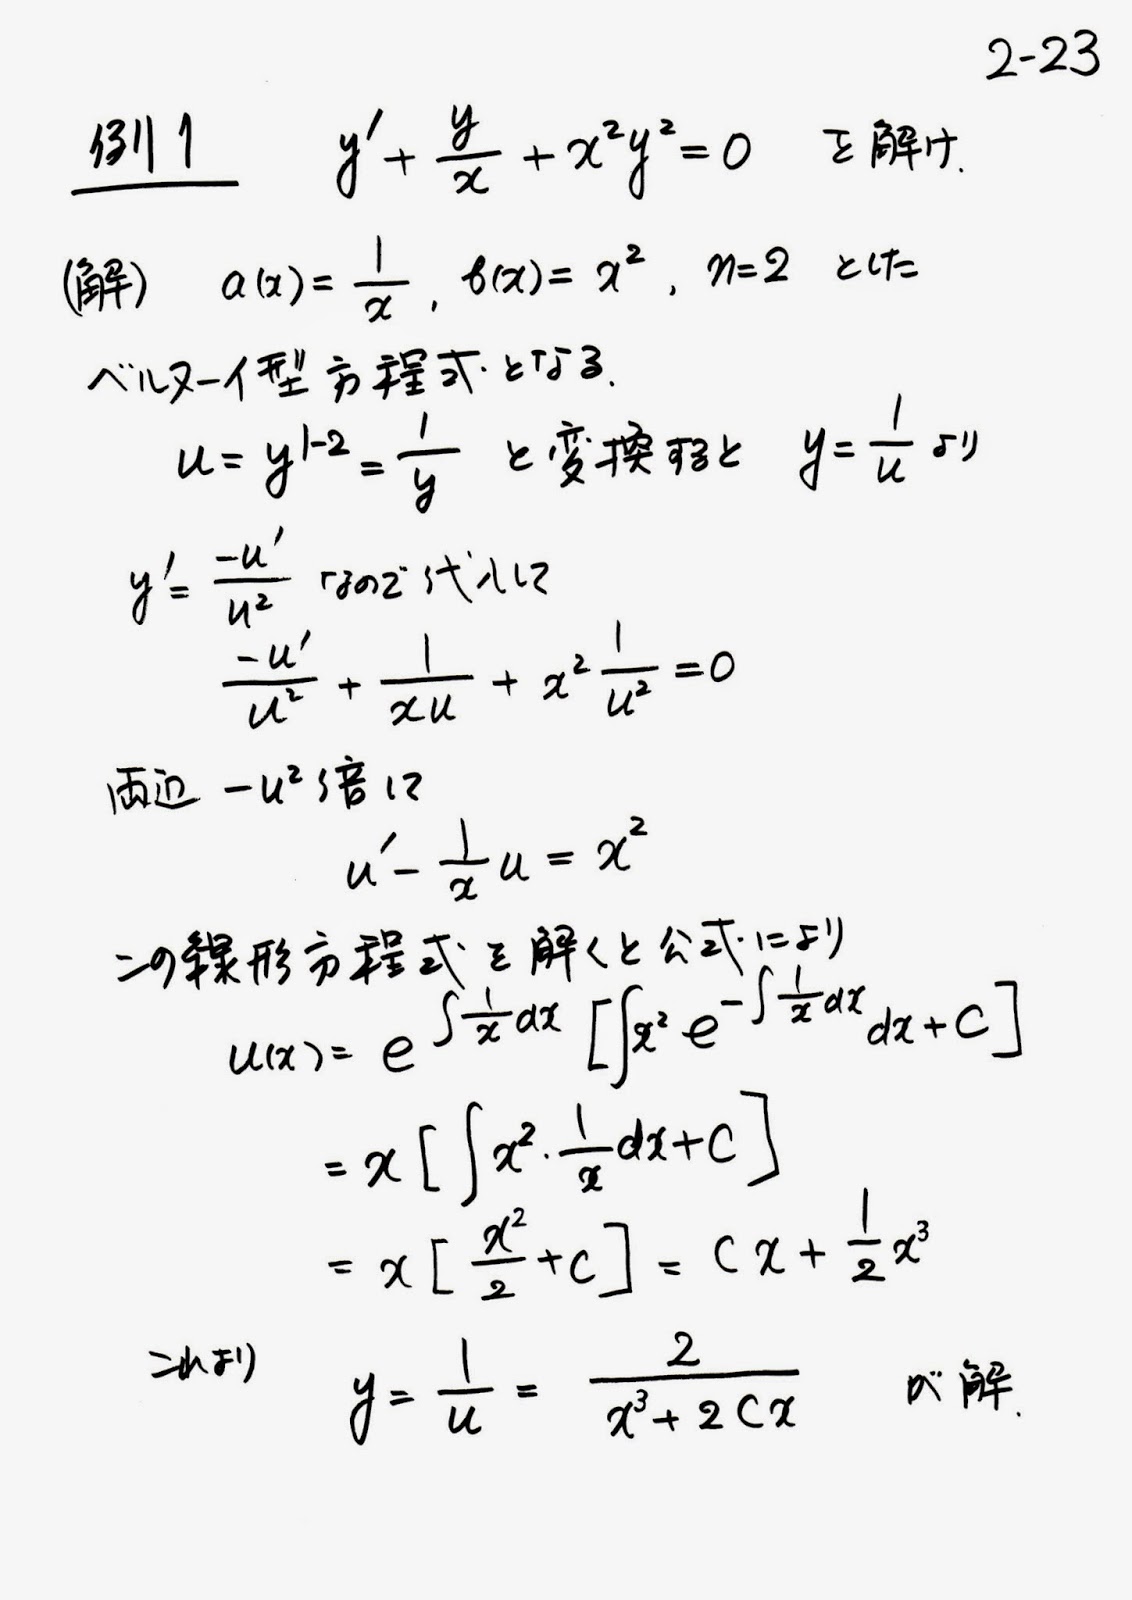 2-23
例1 y′ + y/x + x²y² = 0 を解け.
(解) a(x) = 1/x, b(x) = x², n=2 とした
ベルヌーイ型方程式となる.
u = y^{1-2} = 1/y と変換すると y = 1/u より
y′ = -u′/u² なので代入して
-u′/u² + 1/xu + x² 1/u² = 0
両辺 -u² 倍して
u′ - 1/x u = x²
この線形方程式を解くと公式により
u(x) = e^{∫1/x dx} [∫x² e^{-∫1/x dx} dx + C]
= x [∫x²・1/x dx + C]
= x [x²/2 + C] = Cx + 1/2 x³
これより y = 1/u = 2/(x³ + 2Cx) が解.